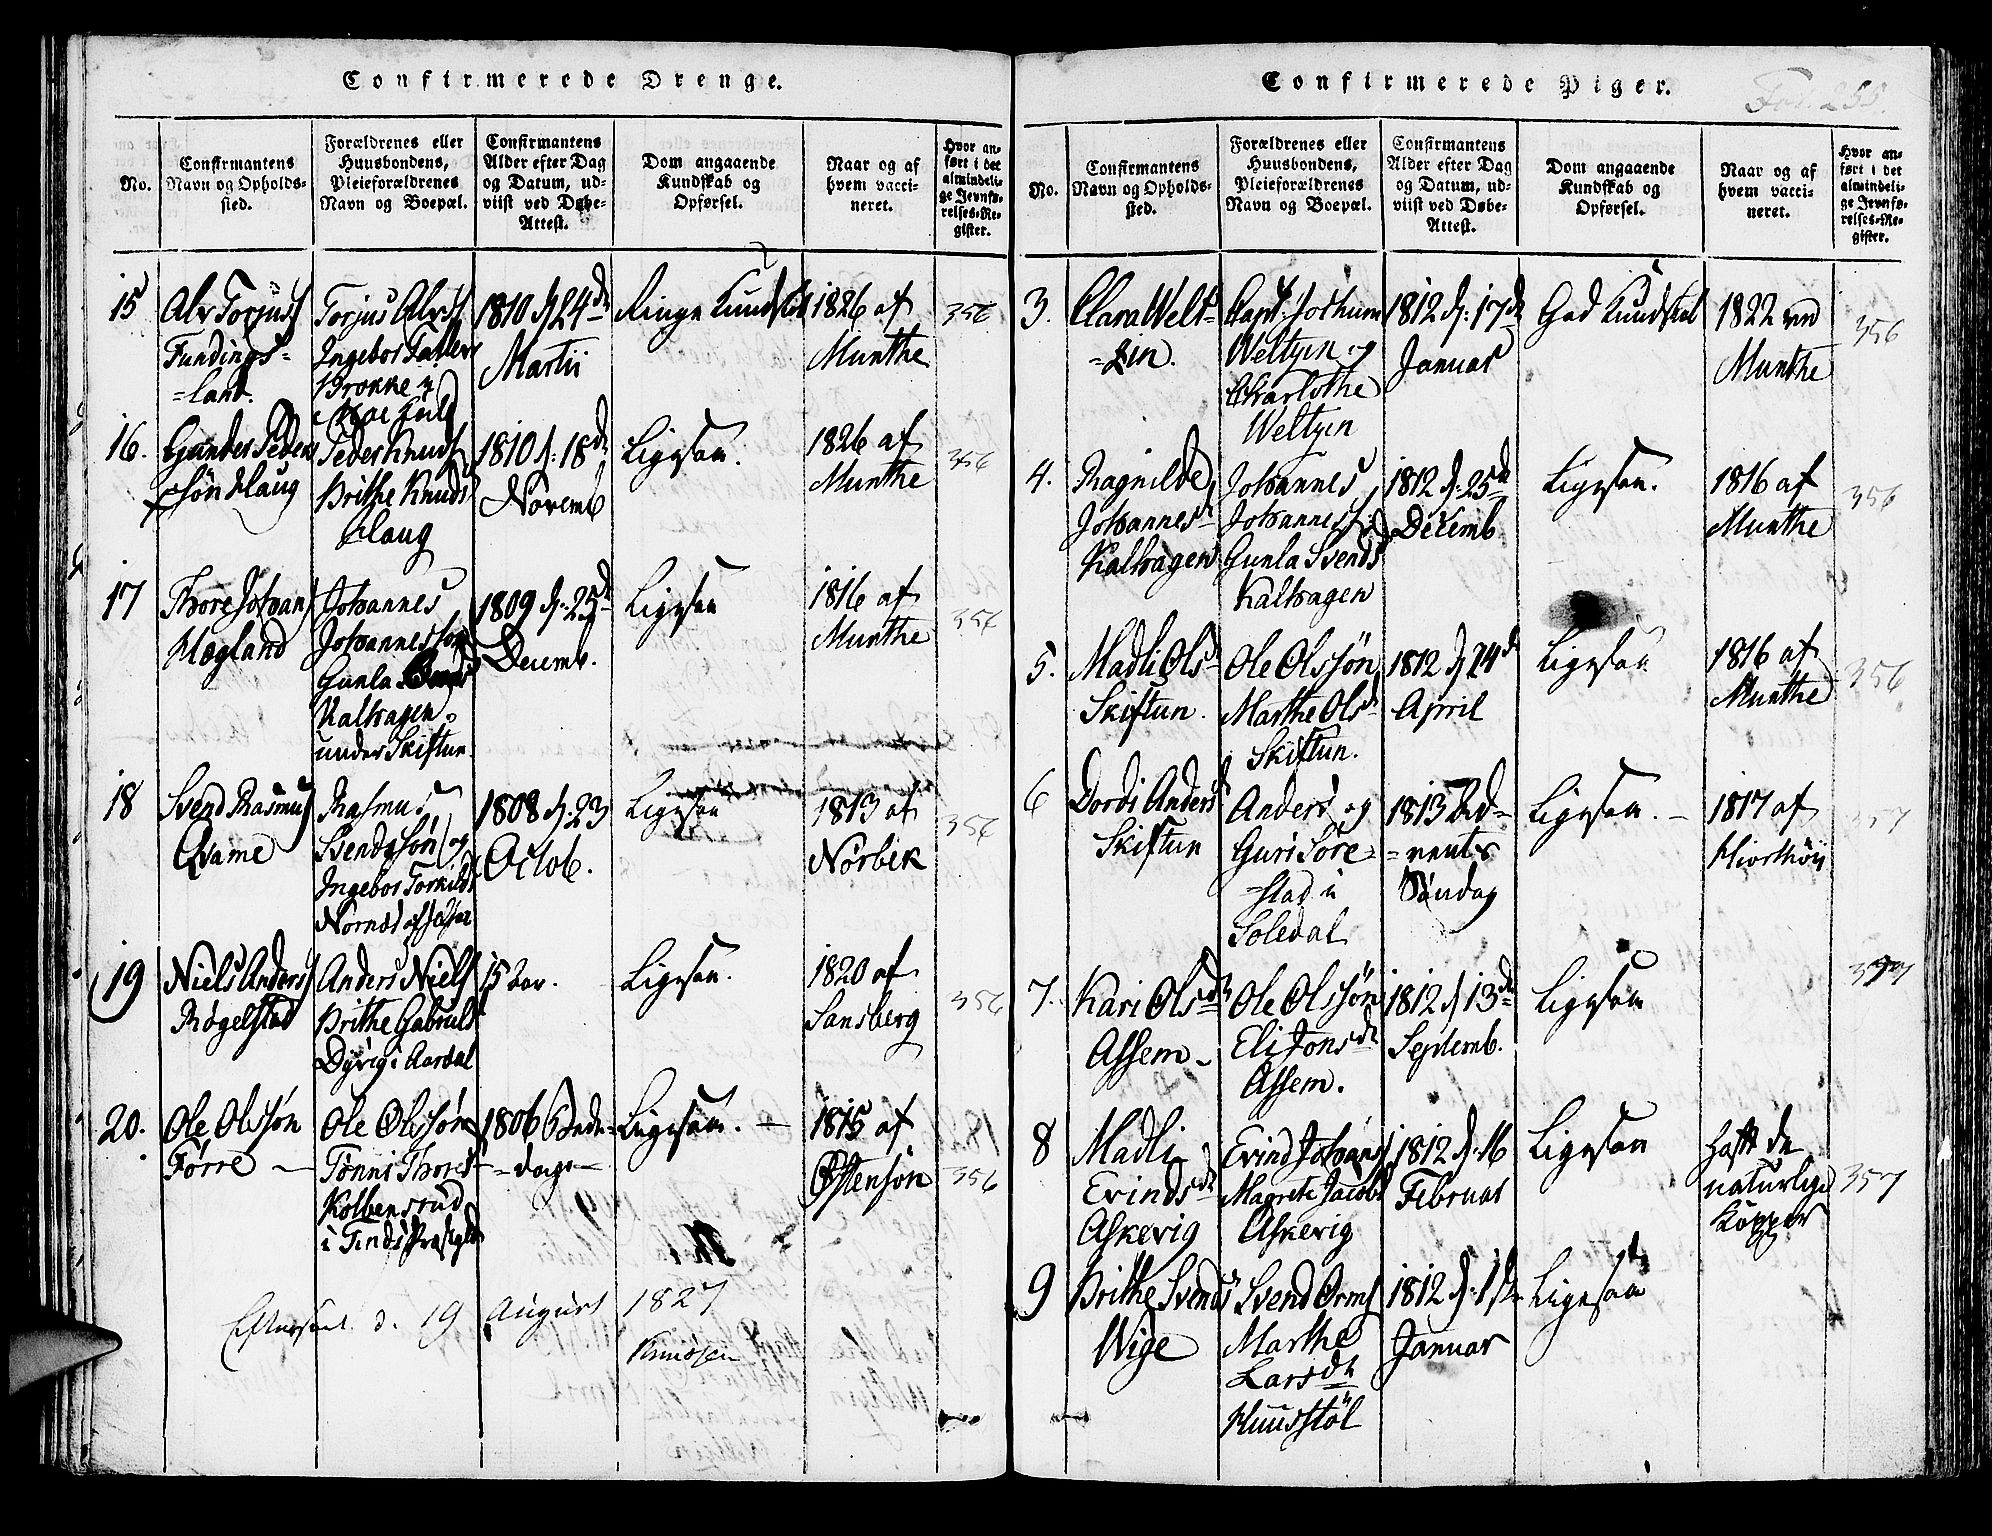 Confirmerede Drenge.
No.
Confirmantens
Navn og Opholds-
sted.
Forældrenes eller
Huusbondens,
Pleieforældrenes
Navn og Boepæl.
Confirmantens
Alder efter Dag
og Datum, ud-
viist ved Døbe-
Attest.
Dom angaaende
Kundskab og
Opførsel.
Naar og af
hvem vacci-
neret.
Hvor an-
ført i det
almindeli-
ge Jevnfø-
relses-Re-
gister.
15
Alv Torjus
Fundings=
=land.
Torjus Alvs
Ingebor
Brokke i
1810 d 24de
Martii
Ringe Kundskab
1826 af
Munthe
356
16.
Gunder Peder
søn Haug
Peder Knuds
Brithe Knuds
Haug
1810 d: 18de
Novemb
Ligesaa.
1826 af
Munthe
356
17
Thore Johan
Hægland
Johannes
Johannessøn
Gunla
Kalhagen
under Skiftun
1809 d: 25de
Decemb.
Ligesaa
1816 af
Munthe
356
18
Svend Rasmus
Qvame
Rasmus
Svendssøn og
Ingebor Torkilds
1808 d: 23
Octob.
Ligesaa
1813 af
Norbek
356
19
Niels Anders
Røgelstad
Anders Niels
Brithe Gabriels
Dyrig i Aardal
15 aar.
Ligesaa.
1820 af
Sansberg
356
20.
Ole Olssøn
Førre
Ole Olssøn
Tønni Thores
Kolbensrud
i Tinds Præstgld
1806 Bede-
-dage
Ligesaa.
1815 af
Østensøn
356
Efterseet d. 19 August 1827
Knudsen
Confirmerede Piger.
Fol. 255.
No.
Confirmantens
Navn og Opholds-
sted.
Forældrenes eller
Huusbondens,
Pleieforældrenes
Navn og Boepæl.
Confirmantens
Alder efter Dag
og Datum, ud-
viist ved Døbe-
Attest.
Dom angaaende
Kundskab og
Opførsel.
Naar og af
hvem vacci-
neret.
Hvor an-
ført i det
almindeli-
ge Jevnfø-
relses-Re-
gister.
3.
Clara Welt-
=zin.
Capt: Jochum
Weltzin og
Charlothe
Weltzin
1812 d: 17de
Januar
God Kundskab
1822
Munthe
356
4.
Ragnilde
Johannesd
Kalhagen
Johannes
Johannes
Gunla Svends
Kalhagen
1812 d: 25de
Decemb
Ligesaa.
1816 af
Munthe
356
5.
Madli Olsd
Skiftun
Ole Olssøn
Marthe Olsd
Skiftun.
1812 d 24de
April
Ligesaa
1816 af
Munthe
356
6
Dordi Anders
Skiftun
Anders og
Guri Søre-
stad i
Soledal
1813 Ad-
=vents
Søndag
Ligesaa.
1817 af
Hiorthøy
357
7.
Kari Olsdt
Assem
Ole Olssøn
Eli Jonsdt
Assem.
1812 d 13de
Septemb.
Ligesaa
357
8
Madli
Evindsdt
Askevig
Evind Johans
Magrete Jacobs
Askevig
1812 d. 16
Februar
Ligesaa
Haft de
naturlige
Kopper
357
9
Brithe Svends
Wige
Svend Orms
Marthe
Larsdt
Huusstøl
1812 d. 1ste
Januar
Ligesaa